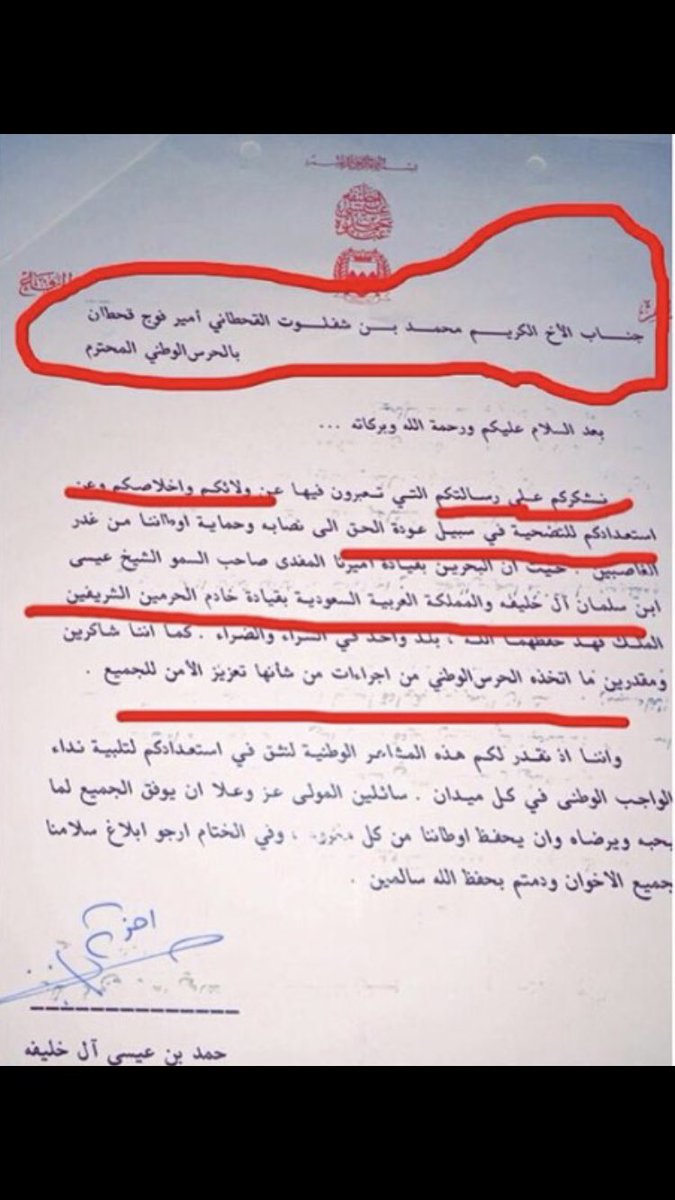 جناب الأخ الكريم محمد بن شفلوت القحطاني أمير فوج قحطان
بالحرس الوطني المحترم
بعد السلام عليكم ورحمة الله وبركاته ...
نشكركم على رسالتكم التي تعبرون فيها عن ولائكم واخلاصكم وعن
استعدادكم للتضحية في سبيل عودة الحق الى نصابه وحماية اوطاننا من غدر
الغاصبين . حيث أن البحرين بقيادة اميرنا المفدى صاحب السمو الشيخ عيسى
ابن سلمان آل خليفه والمملكة العربية السعودية بقيادة خادم الحرمين الشريفين
الملك فهد حفظهما الله ، بلد واحد في السراء والضراء . كما اننا شاكرين
ومقدرين ما اتخذه الحرس الوطني من اجراءات من شأنها تعزيز الأمن للجميع .
وأننا اذ نقدر لكم هذه المشاعر الوطنية لنثق في استعدادكم لتلبية نداء
الواجب الوطنى في كل ميدان . سائلين المولى عز وعلا ان يوفق الجميع لما
يحبه ويرضاه وان يحفظ اوطاننا من كل مكروه ، وفي الختام ارجو ابلاغ سلامنا
جميع الاخوان ودمتم بحفظ الله سالمين .
حمد بن عيسى آل خليفه